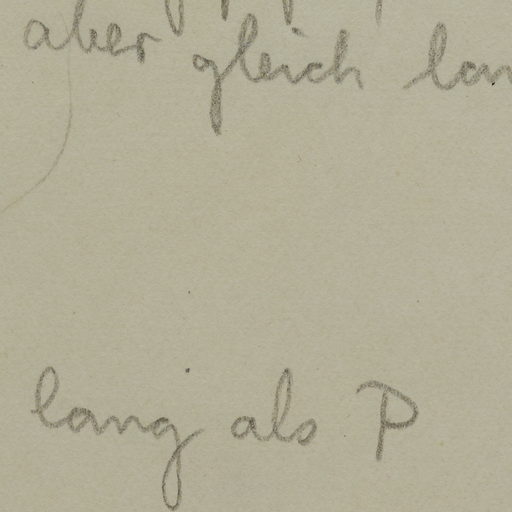 aber gleich lan
lang als P